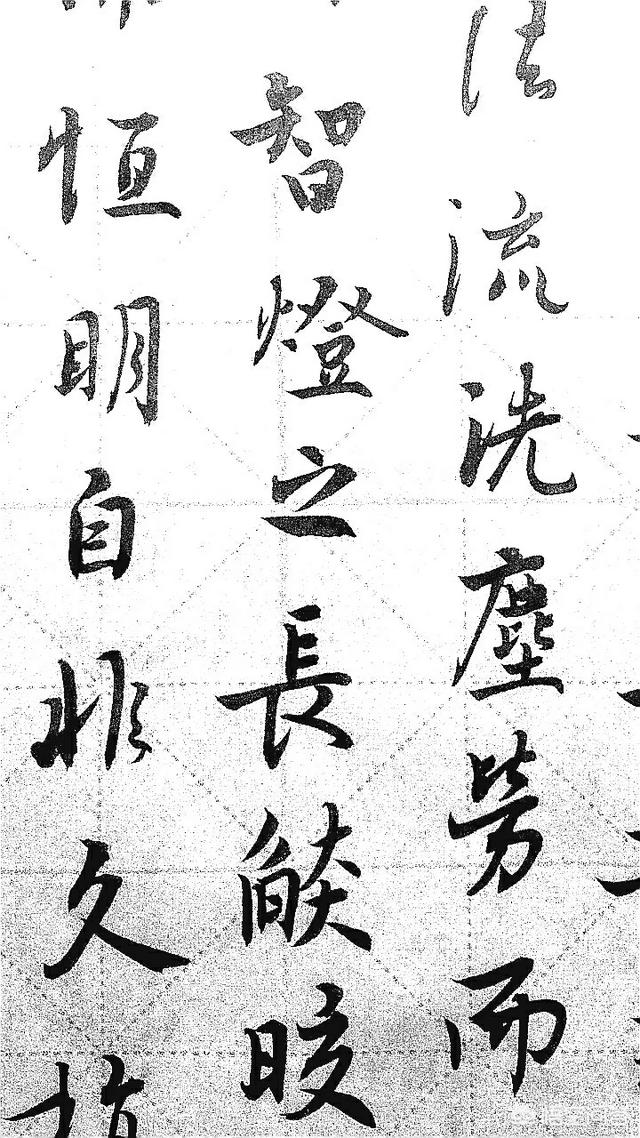 法流洗塵勞而
智燈之長燄皎
恒明自非久植